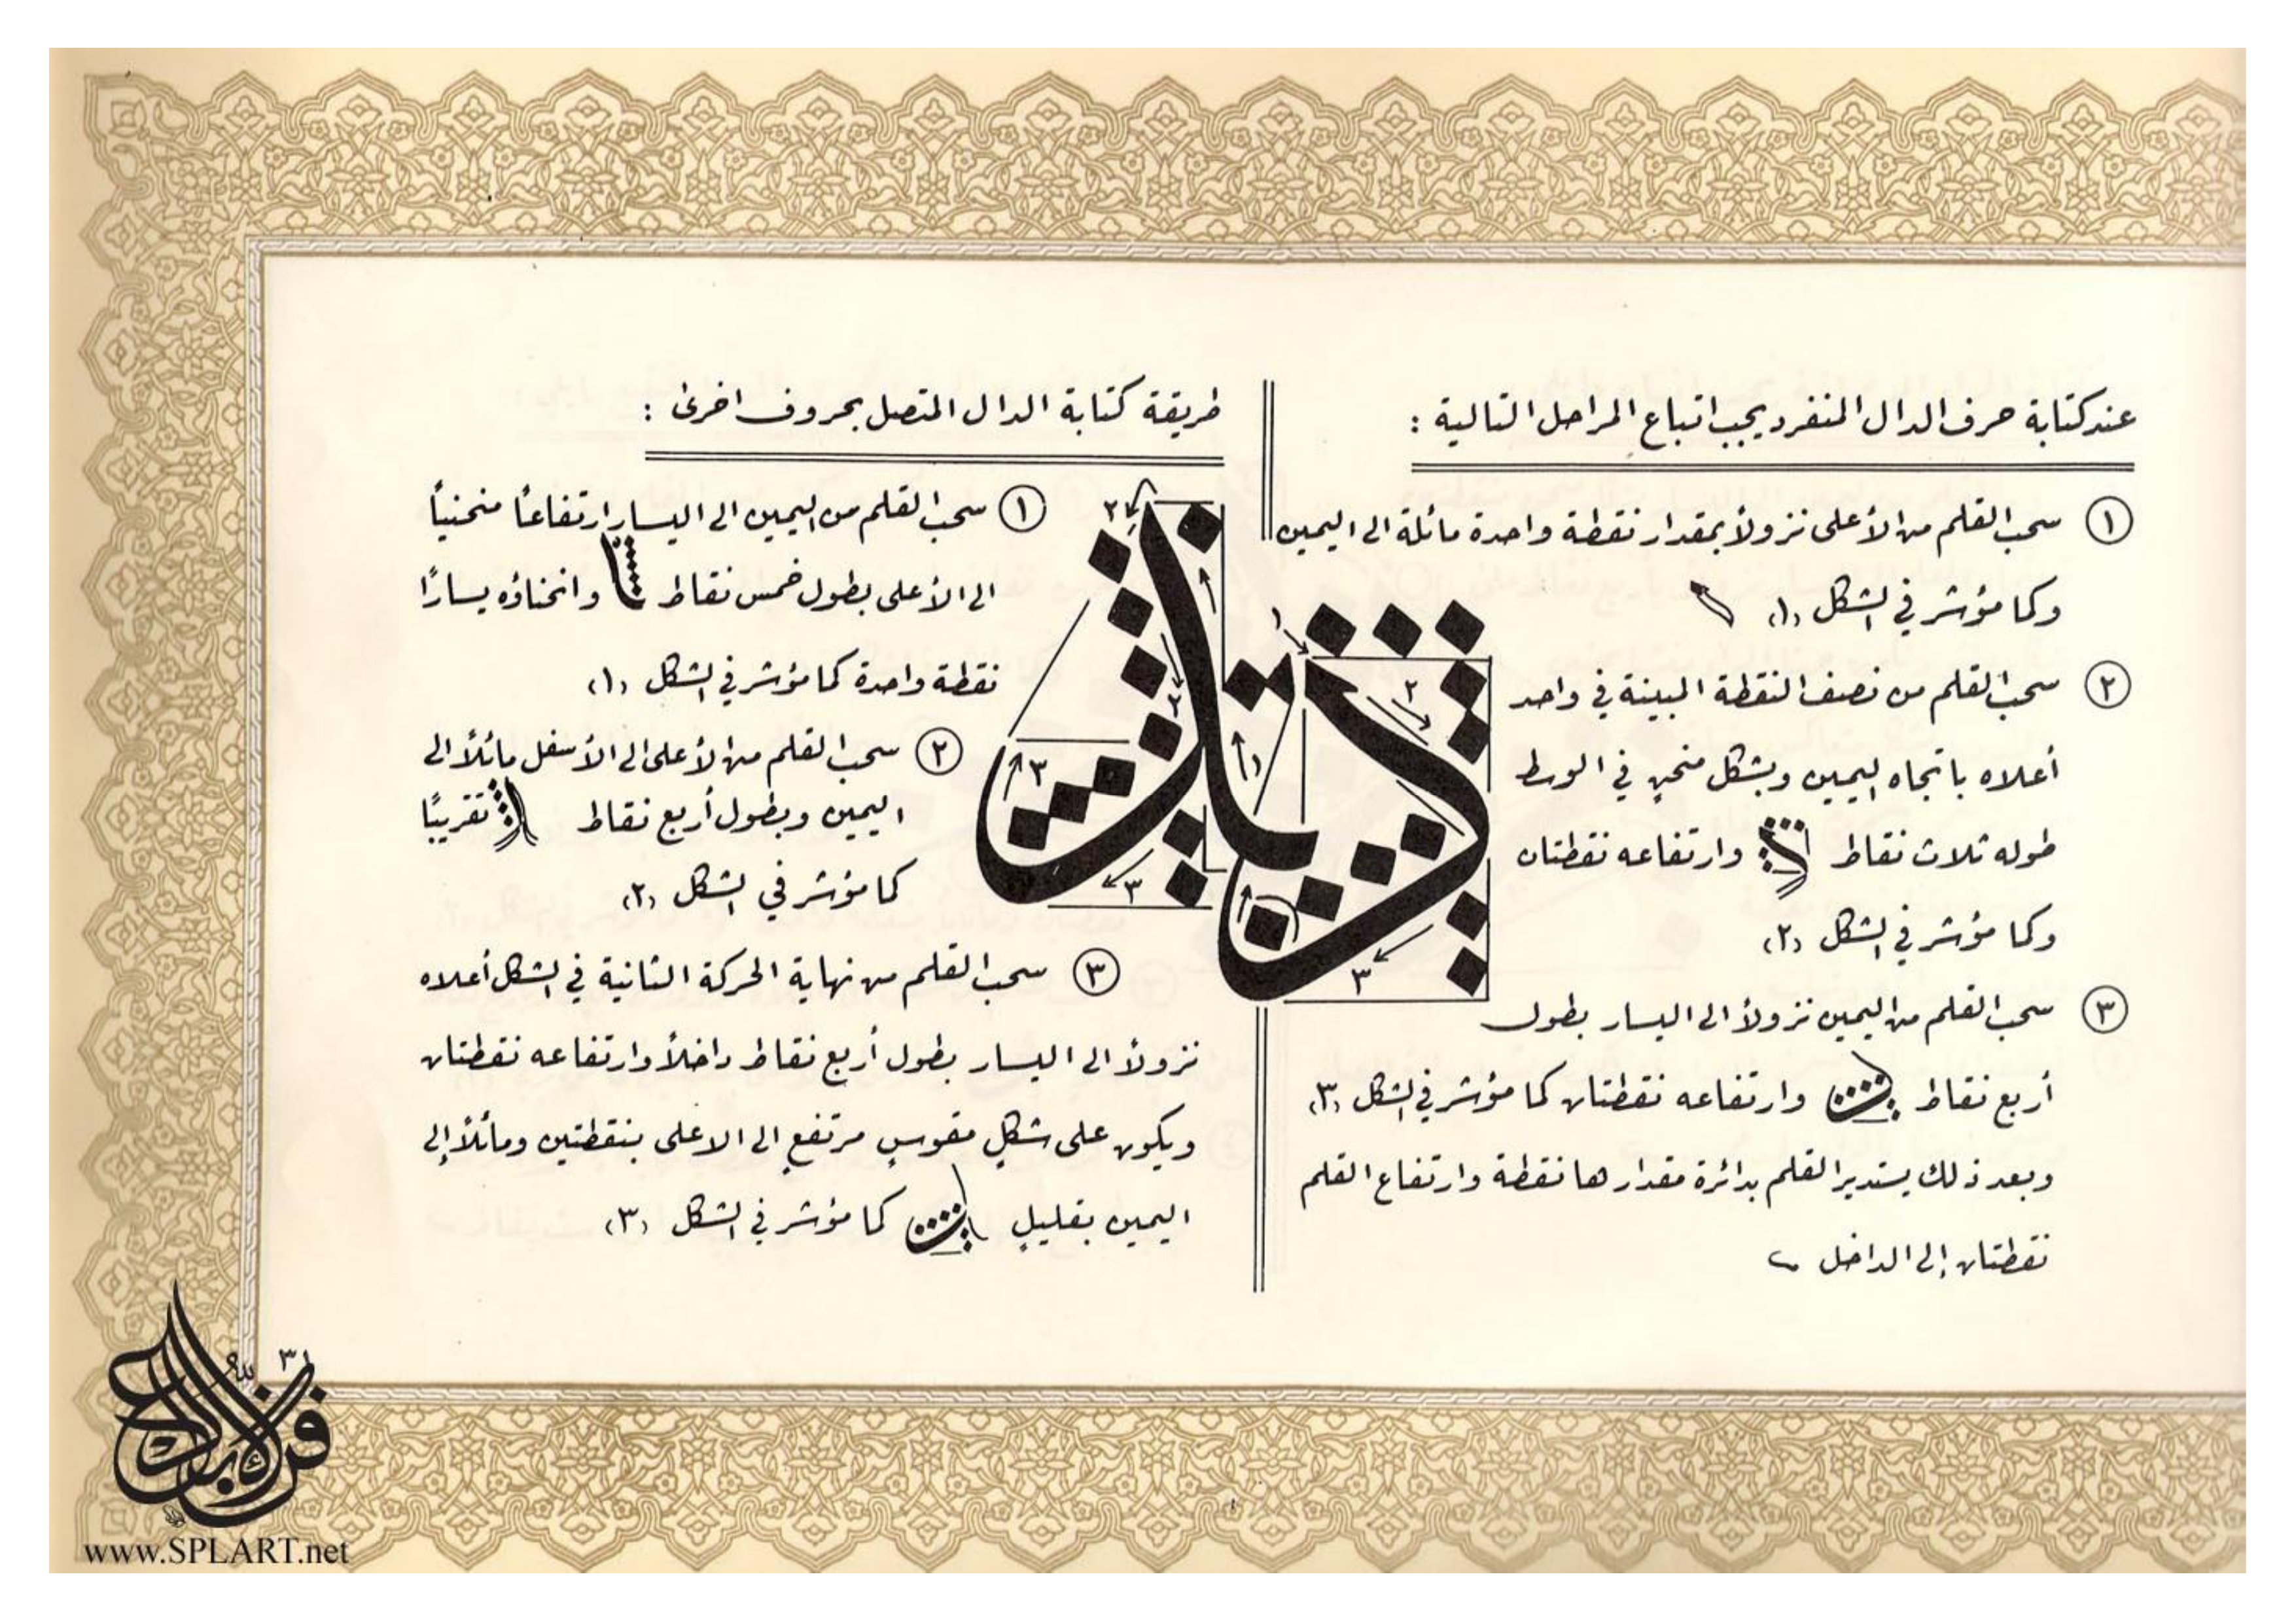 عند كتابة حرف الدال المنفرد يجب اتباع المراحل التالية :
١ سحب القلم من الأعلى نزولاً بمقدار نقطة واحدة مائلة الى اليمين
وكما مؤشر في الشكل (١)
٢ سحب القلم من نصف النقطة المبينة في واحد
أعلاه باتجاه اليمين وبشكل منحنٍ في الوسط
طوله ثلاث نقاط وارتفاعه نقطتان
وكما مؤشر في الشكل (٢)
٣ سحب القلم من اليمين نزولاً الى اليسار بطول
أربع نقاط وارتفاعه نقطتان كما مؤشر في الشكل (٣)
وبعد ذلك يستدير القلم بدائرة مقدارها نقطة وارتفاع القلم
نقطتان إلى الداخل
طريقة كتابة الدال المتصل بحروف اخرى :
١ سحب القلم من اليمين الى اليسار ارتفاعاً منحنياً
الى الأعلى بطول خمس نقاط وانحناؤه يسارًا
نقطة واحدة كما مؤشر في الشكل (١)
٢ سحب القلم من الأعلى الى الأسفل مائلاً الى
اليمين وبطول أربع نقاط تقريبًا
كما مؤشر في الشكل (٢)
٣ سحب القلم من نهاية الحركة الثانية في الشكل أعلاه
نزولاً الى اليسار بطول أربع نقاط داخلاً وارتفاعه نقطتان
ويكون على شكلٍ مقوسٍ مرتفعٍ الى الاعلى بنقطتين ومائلاً إلى
اليمين بقليلٍ كما مؤشر في الشكل (٣)
١
٢
٣
١
٢
٢
٣
٣
٣١
www.SPLART.net